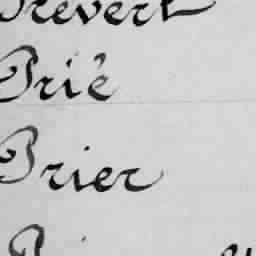 Prévert
Prié
Prier